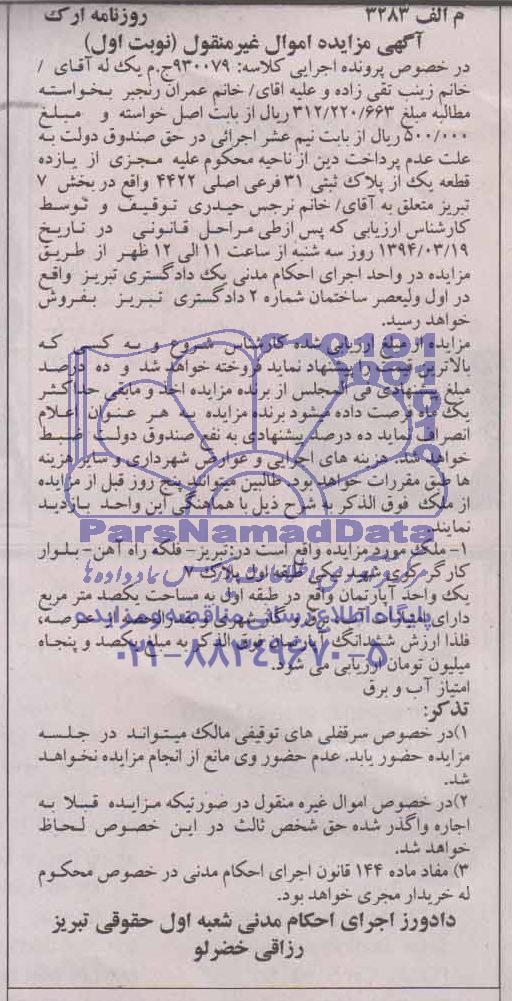 م الف ۳۲۸۳ روزنامه ارک
آگهی مزایده اموال غیرمنقول (نوبت اول)
در خصوص پرونده اجرایی کلاسه: ۹۳۰۰۷۹ج.م یک له آقای /
خانم زینب تقی زاده و علیه آقای/ خانم عمران رنجبر بخواسته
مطالبه مبلغ ۳۱۲/۲۲۰/۶۶۳ ریال از بابت اصل خواسته و مبلغ
۵۰۰/۰۰۰ ریال از بابت نیم عشر اجرائی در حق صندوق دولت به
علت عدم پرداخت دین از ناحیه محکوم علیه مجزی از یازده
قطعه یک از پلاک ثبتی ۳۱ فرعی اصلی ۴۴۲۲ واقع در بخش ۷
تبریز متعلق به آقای/ خانم نرجس حیدری توقیف و توسط
کارشناس ارزیابی که پس ازطی مراحل قانونی در تاریخ
۱۳۹۴/۰۳/۱۹ روز سه شنبه از ساعت ۱۱ الی ۱۲ ظهر از طریق
مزایده در واحد اجرای احکام مدنی یک دادگستری تبریز واقع
در اول ولیعصر ساختمان شماره ۲ دادگستری تبریز بفروش
خواهد رسید.
مزایده از مبلغ ارزیابی شده کارشناس شروع و به کسی که
بالاترین قیمت را پیشنهاد نماید فروخته خواهد شد و ده درصد
مبلغ پیشنهادی فی المجلس از برنده مزایده اخذ و مابقی حداکثر
یک ماه فرصت داده میشود برنده مزایده به هر عنوان اعلام
انصراف نماید ده درصد پیشنهادی به نفع صندوق دولت ضبط
خواهد شد. هزینه های اجرایی و عوارض شهرداری و سایر هزینه
ها طبق مقررات خواهد بود. طالبین میتوانند پنج روز قبل از مزایده
از ملک فوق الذکر به شرح ذیل با هماهنگی این واحد بازدید
نمایند.
ParsNamadData
۱- ملک مورد مزایده واقع است در: تبریز- فلکه راه آهن- بلوار
کارگر- کوی شهد یکی طبقه اول پلاک ۷
یک واحد آپارتمان واقع در طبقه اول به مساحت یکصد متر مربع
دارای امتیازات آب، برق و گاز شهری و قدرالحصه از عرصه،
پایگاه اطلاع رسانی مناقصه و مزایده
فلذا ارزش ششدانگ آپارتمان فوق الذکر به مبلغ یکصد و پنجاه
۰۲۱-۸۸۳۴۹۶۷۰-۵
میلیون تومان ارزیابی می شود.
امتیاز آب و برق
تذکر:
۱)در خصوص سرقفلی های توقیفی مالک میتواند در جلسه
مزایده حضور یابد. عدم حضور وی مانع از انجام مزایده نخواهد
شد.
۲)در خصوص اموال غیره منقول در صورتیکه مزایده قبلا به
اجاره واگذر شده حق شخص ثالث در این خصوص لحاظ
خواهد شد.
۳) مفاد ماده ۱۴۴ قانون اجرای احکام مدنی در خصوص محکوم
له خریدار مجری خواهد بود.
دادورز اجرای احکام مدنی شعبه اول حقوقی تبریز
رزاقی خضرلو